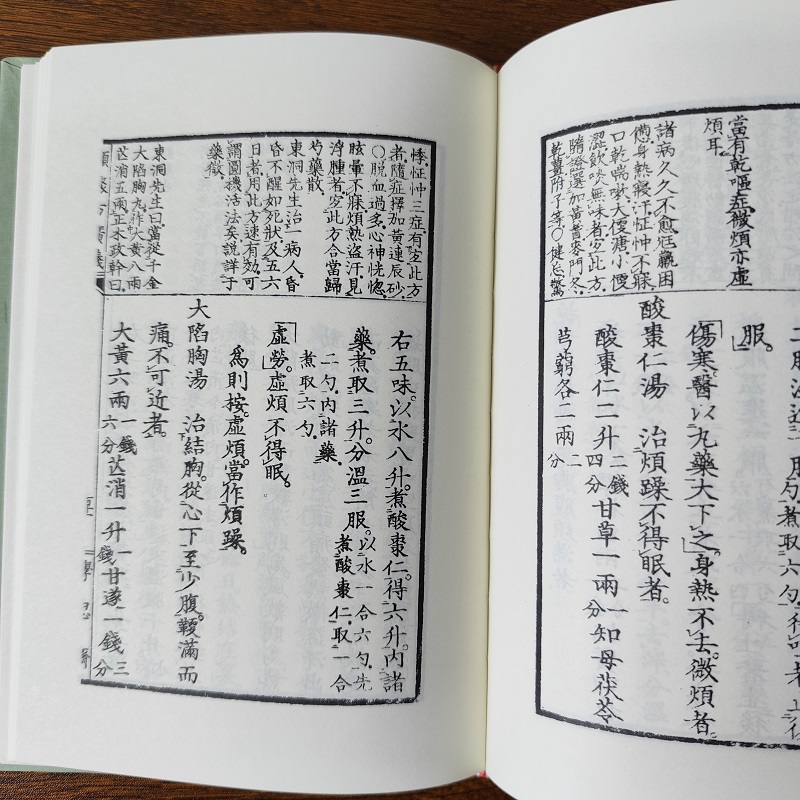 當有乾嘔症微煩亦虛
煩耳
諸病久久不愈尫羸困
憊身熱寢汗怔忡不寐
口乾喘嗽大便溏小便
澀飲啖無味者宜此方
隨證選加黃耆麥門冬
乾薑附子等○健忘驚
服。
傷寒。醫以丸藥大下之。身熱不去。微煩者。
酸棗仁湯 治煩躁不得眠者。
酸棗仁二升二錢四分甘草一兩一分知母茯苓
芎藭各二兩二分
悸怔忡三症有宜此方
者隨症擇加黃連辰砂
○脫血過多心神恍惚
眩暈不寐煩熱盜汗見
浮腫者宜此方合當歸
芍藥散
東洞先生治一病人昏
昏不醒如死狀及五六
日者用此方速有効可
謂圓機活法矣說詳于
藥徵
東洞先生曰當從千金
大陷胸丸作大黃八兩
芒消五兩正木政幹曰
右五味。以水八升。煮酸棗仁。得六升。內諸
藥。煮取三升。分溫三服。以水一合六勺。先煮酸棗仁。取一合
二勺。內諸藥。煮取六勺。
虛勞。虛煩不得眠。
為則按。虛煩。當作煩躁。
大陷胸湯 治結胸。從心下至少腹。鞕滿而
痛。不可近者。
大黃六兩一錢六分芒消一升一錢甘遂一錢三分